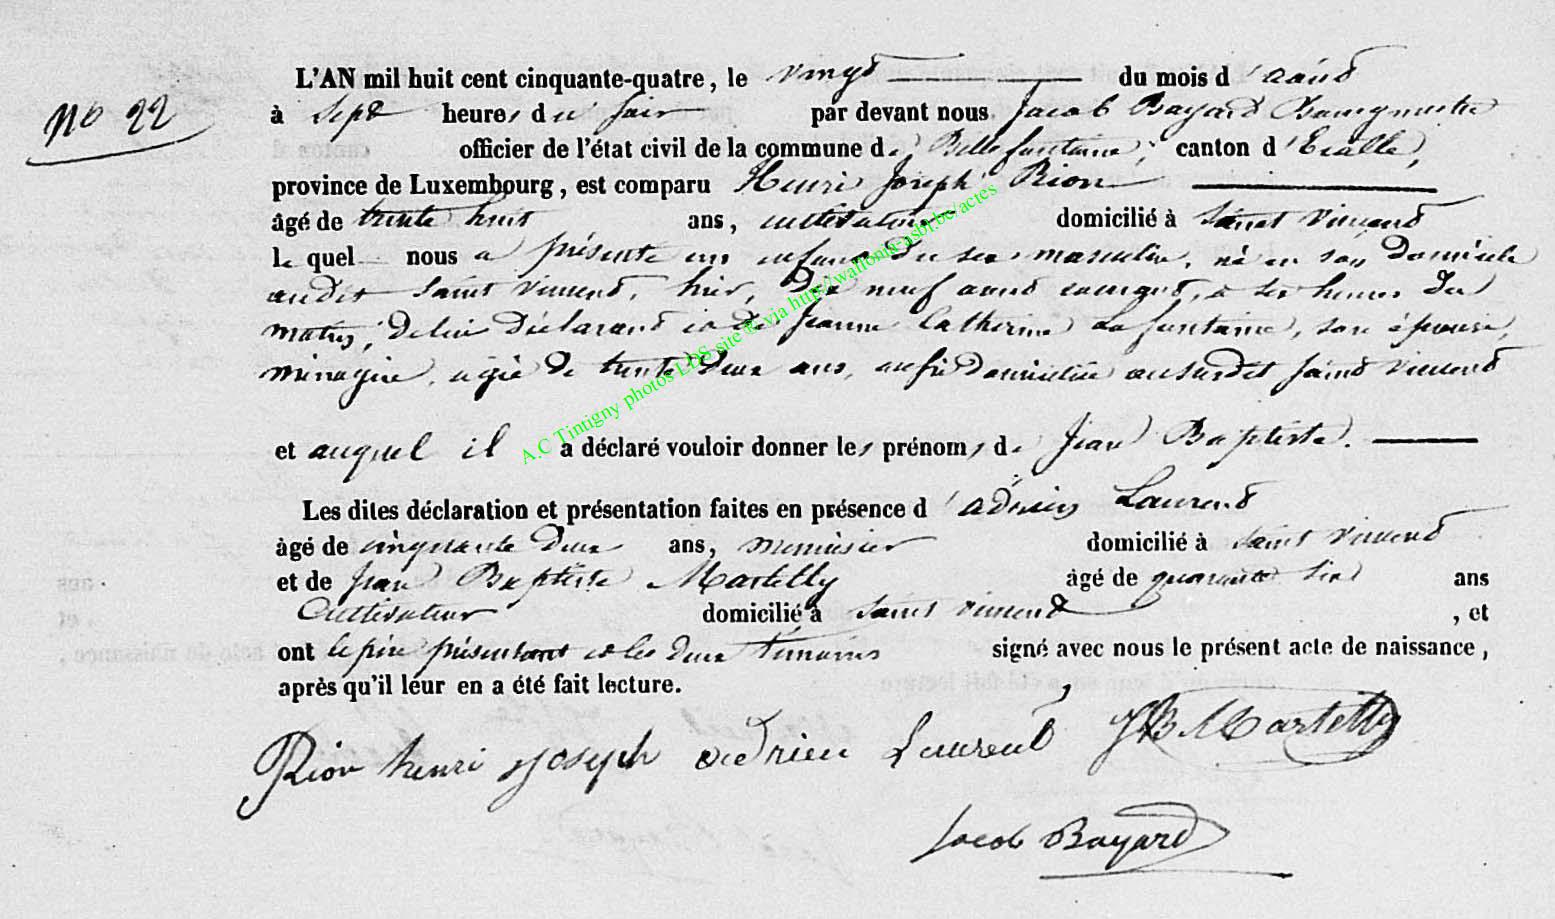 No 22
L'AN mil huit cent cinquante-quatre, le vingt du mois d'août
à sept heures du soir par devant nous Jacob Bayard Bourgmestre
officier de l'état civil de la commune de Bellefontaine, canton d'Etalle,
province de Luxembourg, est comparu Henri Joseph Rion
âgé de trente huit ans, cultivateur domicilié à Saint Vincent
lequel nous a présenté un enfant du sexe masculin, né en son domicile
audit Saint Vincent, hier, dix neuf août courant, à six heures du
matin, de lui déclarant et de Jeanne Catherine Lafontaine, son épouse,
ménagère, agée de trente deux ans, aussi domiciliée au susdit Saint Vincent
et auquel il a déclaré vouloir donner les prénoms de Jean Baptiste.
Les dites déclaration et présentation faites en présence d'Adrien Laurent
âgé de cinquante deux ans, menuisier domicilié à Saint Vincent
et de Jean Baptiste Martelly âgé de quarante six ans
Cultivateur domicilié à Saint Vincent, et
ont le père présentant et les deux témoins signé avec nous le présent acte de naissance,
après qu'il leur en a été fait lecture.
Rion henri Joseph Adrien Laurent JB Martelly
Jacob Bayard
A.C Tintigny photos LDS site ® via http://wallonia-asbl.be/actes